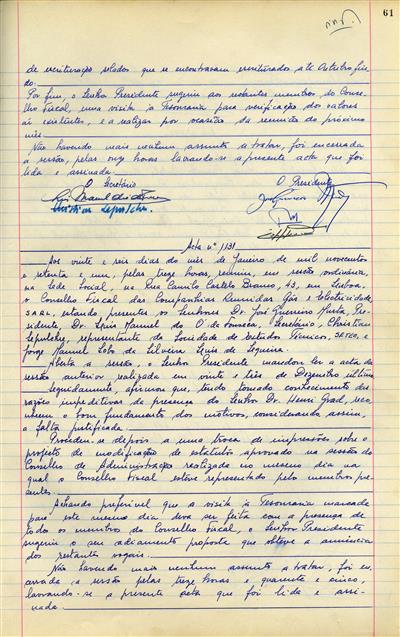 61
de escrituração selados que se encontravam escriturados até Outubro fin-
do.
Por fim, o Senhor Presidente sugeriu aos restantes membros do Conse-
lho Fiscal, uma visita à Tesouraria para verificação dos valores
aí existentes, e a realizar por ocasião da reunião do próximo
mês.
Não havendo mais nenhum assunto a tratar, foi encerrada
a sessão, pelas onze horas lavrando-se a presente acta que foi
lida e assinada.
O Secretário O Presidente
Christian Lepeltier
Acta nº 1131
Aos vinte e seis dias do mês de Janeiro de mil novecentos
e setenta e um, pelas treze horas, reuniu, em sessão ordinária,
na Sede Social, na Rua Camilo Castelo Branco, 43, em Lisboa,
o Conselho Fiscal das Companhias Reunidas Gás e Electricidade
SARL, estando presentes os Senhores Dr. José Guerreiro Murta, Pre-
sidente, Dr. Luís Manuel do Ó da Fonseca, Secretário, Christian
representante da Sociedade de Estudos Técnicos, SETEC, e
Jorge Manuel Lobo da Silveira Luís de Sequeira.
Aberta a sessão, o Senhor Presidente mandou ler a acta da
sessão anterior, realizada em vinte e três de Dezembro último
seguidamente, afirmou que, tendo tomado conhecimento das
razões impeditivas da presença do Senhor Dr. Henri Grad, reco-
nhecem o bom fundamento dos motivos, considerando assim,
a falta justificada.
Procedeu-se depois a uma troca de impressões sobre o
projecto de modificação de estatutos aprovado na sessão do
Conselho de Administração realizada no mesmo dia na
qual o Conselho Fiscal esteve representado pelos membros pre-
sentes.
Achando preferível que a visita à Tesouraria marcada
para este mesmo dia deva ser feita com a presença de
todos os membros do Conselho Fiscal, o Senhor Presidente
sugeriu o seu adiamento proposta que obteve a anuência
dos restantes vogais.
Não havendo mais nenhum assunto a tratar, foi en-
cerrada a sessão pelas treze horas e quarenta e cinco,
lavrando-se a presente acta que foi lida e assi-
nada.